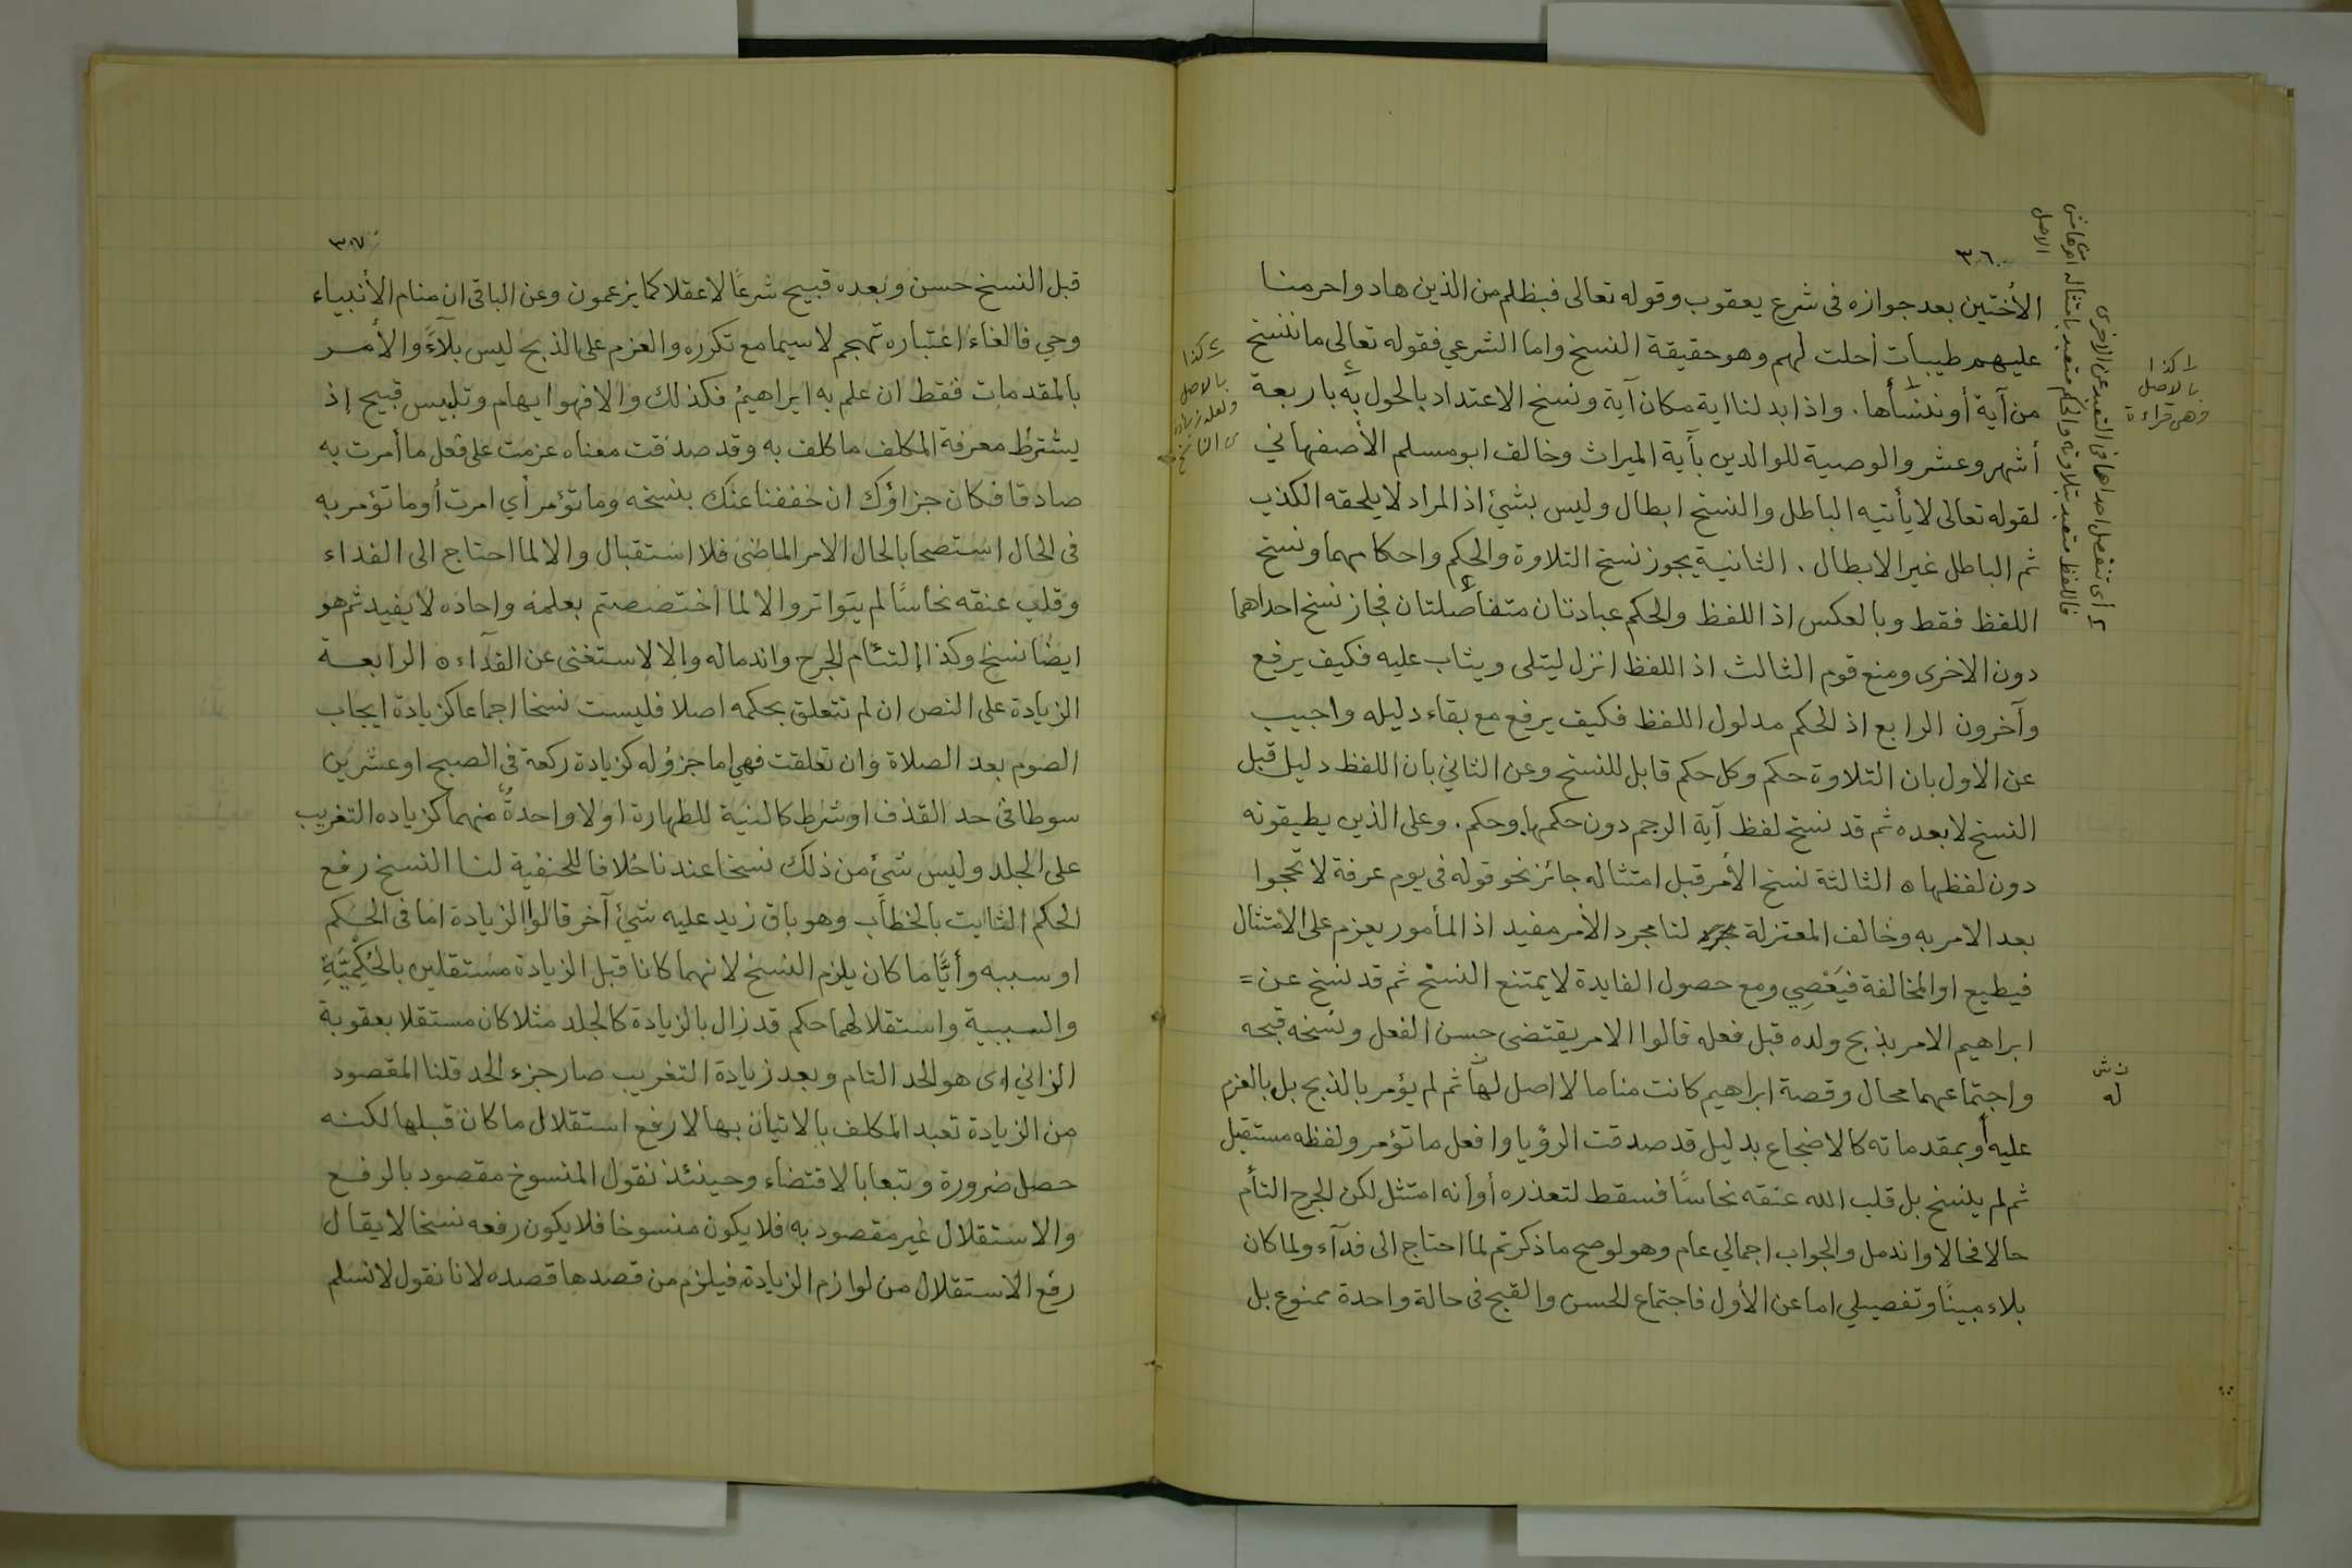 ٣٠٦
الأختين بعد جوازه فى شرع يعقوب وقوله تعالى فبظلم من الذين هادوا حرمنا
عليهم طيبات أحلت لهم وهو حقيقة النسخ واما الشرعي فقوله تعالى ما ننسخ
من آية أو ننسأها . واذا بدلنا اية مكان آية ونسخ الاعتداد بالحول به باربعة
أشهر وعشر والوصية للوالدين بآية الميراث وخالف ابو مسلم الأصفهاني
لقوله تعالى لا يأتيه الباطل والنسخ ابطال وليس بشيئ اذ المراد لا يلحقه الكذب
ثم الباطل غير الابطال . الثانية يجوز نسخ التلاوة والحكم واحكامهما ونسخ
اللفظ فقط وبالعكس اذ اللفظ والحكم عبادتان متفاصلتان فجاز نسخ احداهما
دون الاخرى ومنع قوم الثالث اذ اللفظ انزل ليتلى ويثاب عليه فكيف يرفع
وآخرون الرابع اذ الحكم مدلول اللفظ فكيف يرفع مع بقاء دليله واجيب
عن الاول بان التلاوة حكم وكل حكم قابل للنسخ وعن الثاني بان اللفظ دليل قبل
النسخ لا بعده ثم قد نسخ لفظ آية الرجم دون حكمها وحكم . وعلى الذين يطيقونه
دون لفظها ٥ الثالثة نسخ الأمر قبل امتثاله جائز نحو قوله فى يوم عرفة لا تحجوا
بعد الامر به وخالف المعتزلة لنا مجرد الأمر مفيد اذ المأمور يعزم على الامتثال
فيطيع او المخالفة فيَعْصِي ومع حصول الفايدة لا يمتنع النسخ ثم قد نسخ عن =
ابراهيم الامر بذبح ولده قبل فعله قالوا الامر يقتضى حسن الفعل ونسخه قبحه
واجتماعهما محال وقصة ابراهيم كانت مناما لا اصل لها ثم لم يؤمر بالذبح بل بالعزم
عليه أو بمقدماته كالاضجاع بدليل قد صدقت الرؤيا وافعل ما تؤمر ولفظه مستقبل
ثم لم ينسخ بل قلب الله عنقه نحاسًا فسقط لتعذره أو أنه امتثل لكن الجرح التأم
حالا فحالا واندمل والجواب اجمالي عام وهو لو صح ما ذكرتم لما احتاج الى فدآء ولما كان
بلاء مبينًا وتفصيلي اما عن الأول فاجتماع الحسن والقبح فى حالة واحدة ممنوع بل
١ كذا
بالاصل
وهى قراءة
٢ كذا
بالاصل
ولعله زيادة
من الناسخ
٤ أى تنفصل احداهما فى التعبد عن الاخرى
فاللفظ متعبد بتلاوته والحكم متعبد بامتثاله اهـ هامش
الاصل
ن ش
له
٣٠٧
قبل النسخ حسن وبعده قبيح شرعًا لا عقلا كما يزعمون وعن الباقى ان منام الأنبياء
وحي فالغاء اعتباره تهجم لا سيما مع تكرره والعزم على الذبح ليس بلآءً والأمر
بالمقدمات فقط ان علم به ابراهيم فكذلك والا فهو ايهام وتلبيس قبيح إذ
يشترط معرفة المكلف ما كلف به وقد صدقت معناه عزمت على فعل ما أمرت به
صادقا فكان جزاؤك ان خففنا عنك بنسخه وما تؤمر أي امرت أو ما تؤمر به
فى الحال استصحابا لحال الامر الماضى فلا استقبال والا لما احتاج الى الفداء
وقلب عنقه نحاسًا لم يتواتر والا لما اختصصتم بعلمه واحاده لا يفيد ثم هو
ايضًا نسخ وكذا إلتئام الجرح واندماله وإلا لاستغنى عن الفدآء ٥ الرابعة
الزيادة على النص ان لم تتعلق بحكمه اصلا فليست نسخا اجماعا كزيادة ايجاب
الصوم بعد الصلاة وان تعلقت فهي اما جزؤ له كزيادة ركعة فى الصبح او عشرين
سوطا فى حد القذف او شرط كالنية للطهارة او لا واحدة منهما كزياده التغريب
على الجلد وليس شئ من ذلك نسخا عندنا خلافا للحنفية لنا النسخ رفع
الحكم الثابت بالخطاب وهو باق زيد عليه شئ آخر قالوا الزيادة اما فى الحكم
او سببه وأيًّا ما كان يلزم النسخ لانهما كانا قبل الزيادة مستقلين بالحُكْمِيَّةِ
والسببية واستقلالهما حكم قد زال بالزيادة كالجلد مثلا كان مستقلا بعقوبة
الزاني اى هو الحد التام وبعد زيادة التغريب صار جزء الحد قلنا المقصود
من الزيادة تعبد المكلف بالاتيان بها لا رفع استقلال ما كان قبلها لكنه
حصل ضرورة وتبعا بالاقتضاء وحينئذ نقول المنسوخ مقصود بالرفع
والاستقلال غير مقصود به فلا يكون منسوخا فلا يكون رفعه نسخا لا يقال
رفع الاستقلال من لوازم الزيادة فيلزم من قصدها قصده لانا نقول لا نسلم